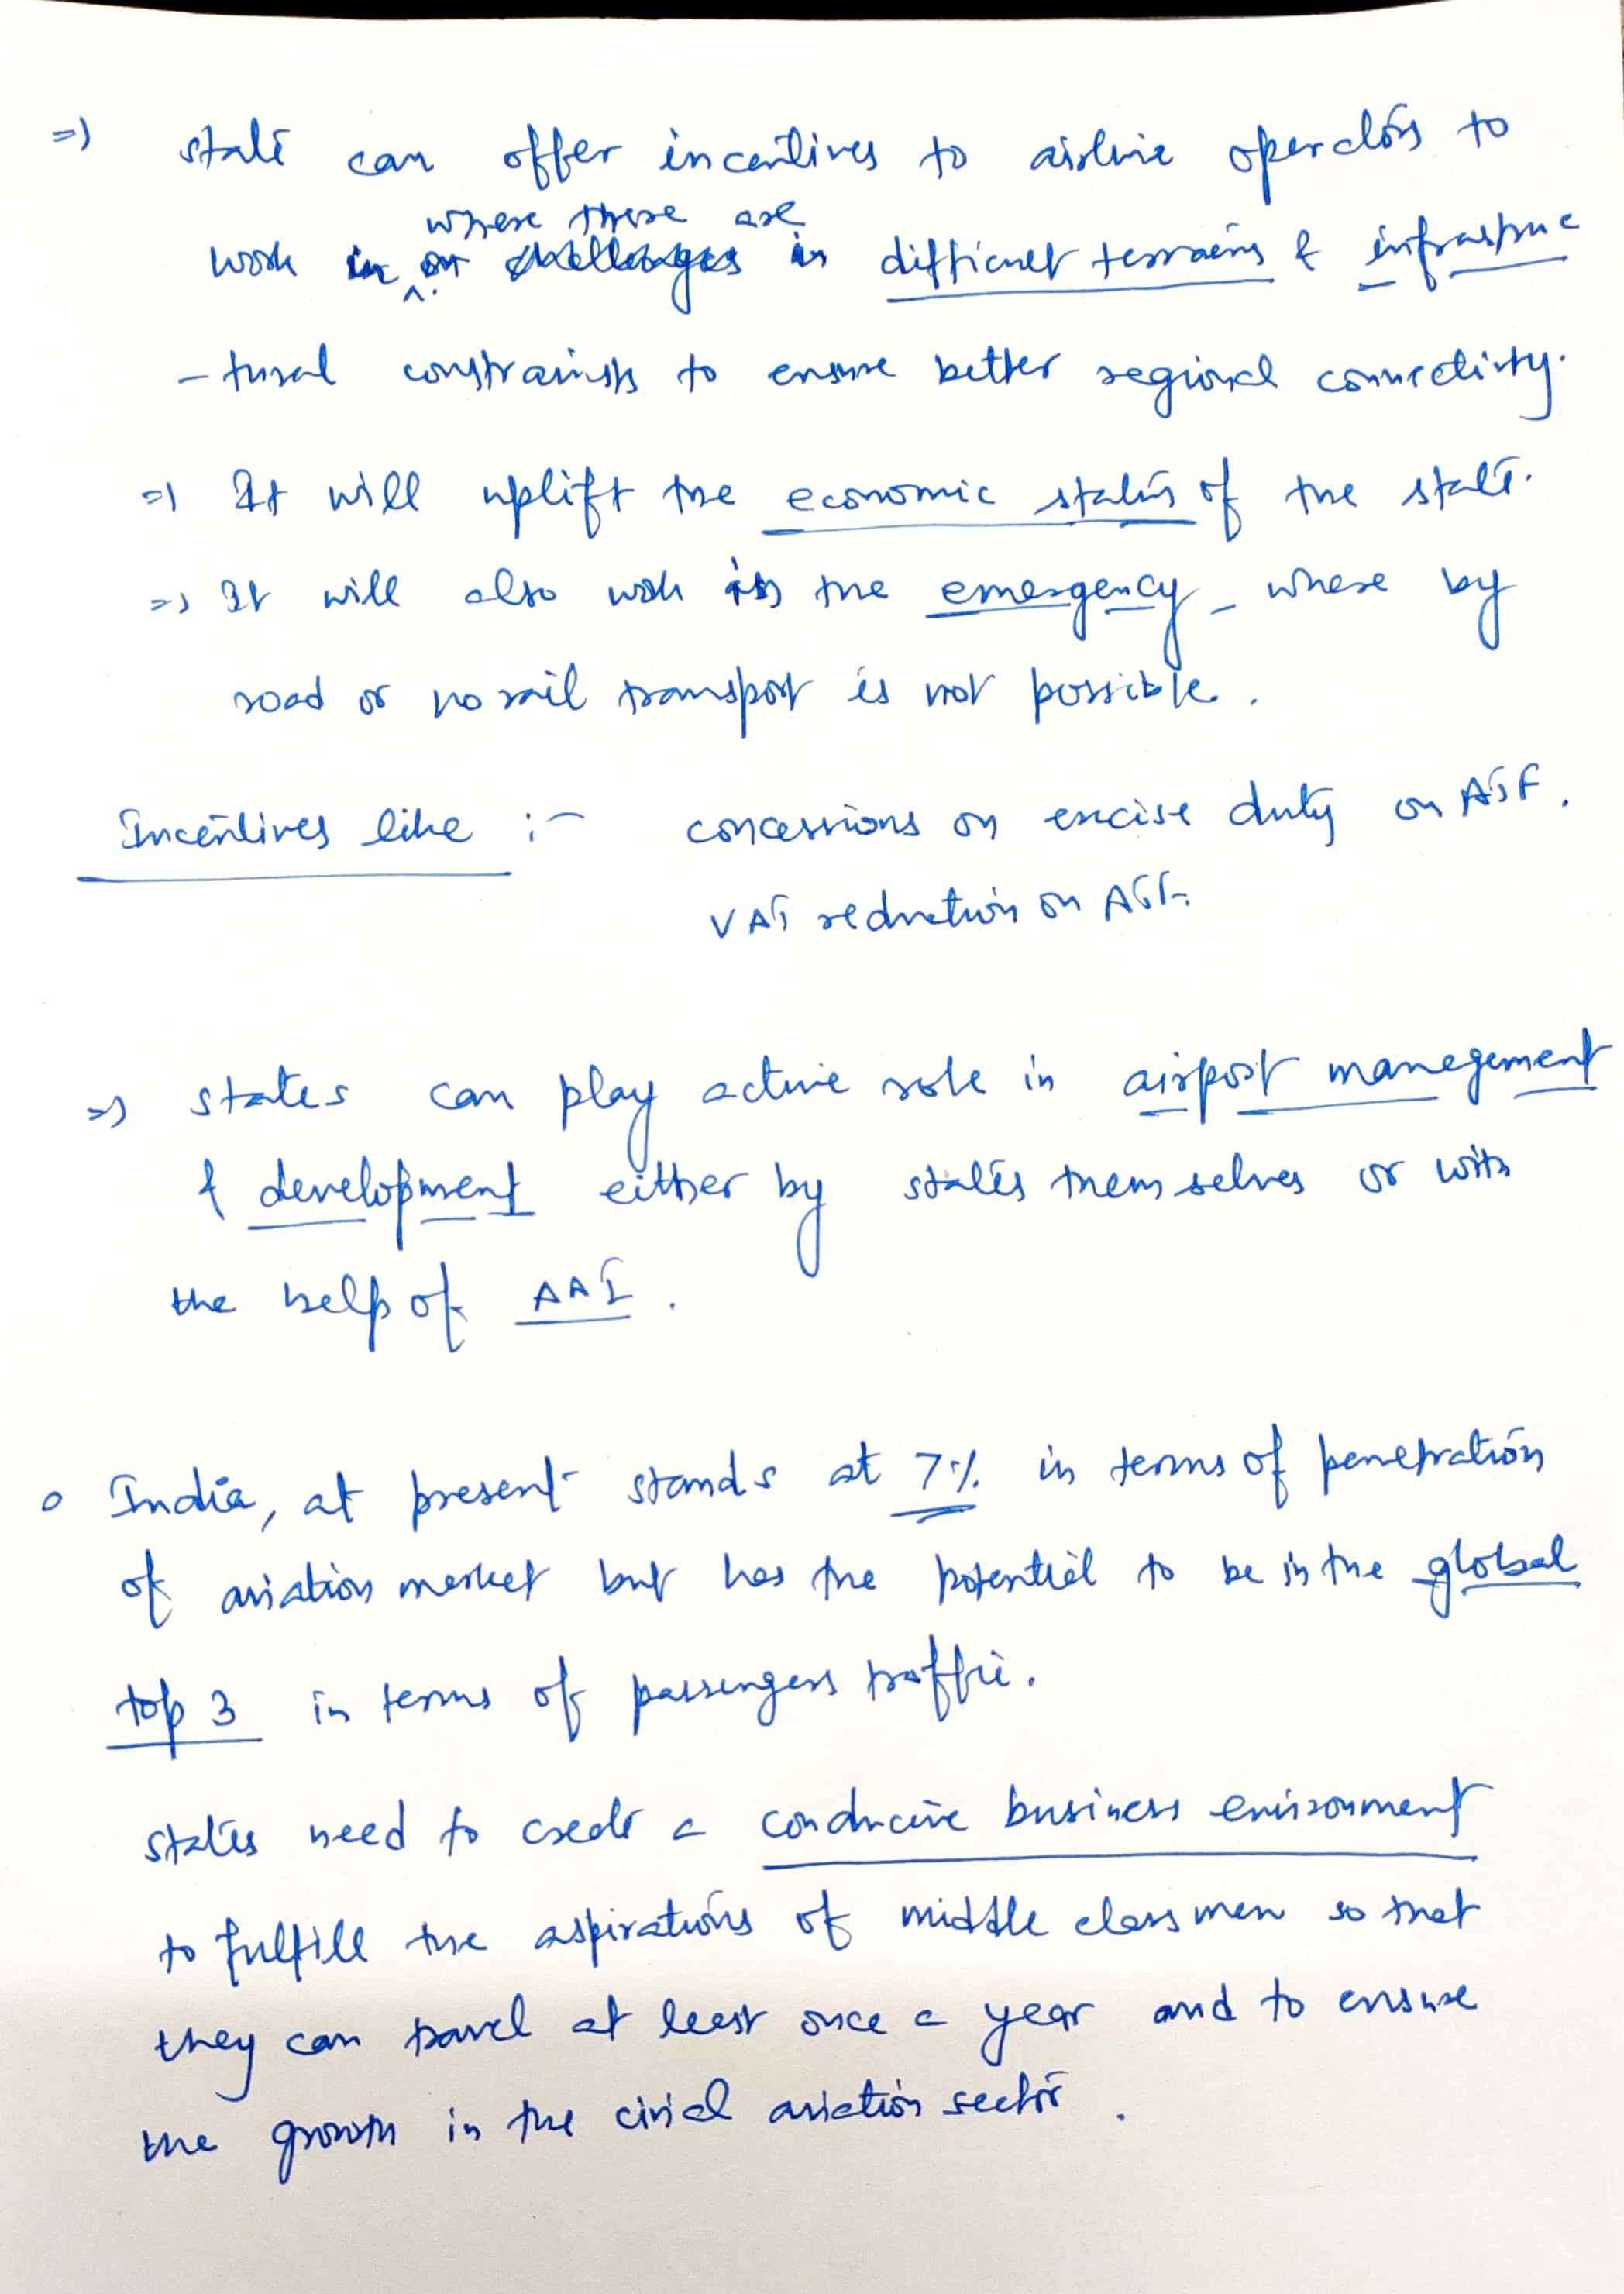 =) state can offer incentives to airline operators to
where there are
work in on challenges in difficult terrains & infrastruc
- tural constraints to ensure better regional connectivity.
=) It will uplift the economic status of the state.
=) It will also work in the emergency where by
road or no rail transport is not possible.
Incentives like :- concessions on excise duty on ATF.
VAT reduction on ATF.
=) states can play active role in airport management
& development either by states themselves or with
the help of AAI.
o India, at present stands at 7% in terms of penetration
of aviation market but has the potential to be in the global
top 3 in terms of passengers traffic.
states need to create a conducive business environment
to fulfill the aspirations of middle class men so that
they can travel at least once a year and to ensure
the growth in the civial aviation sector.